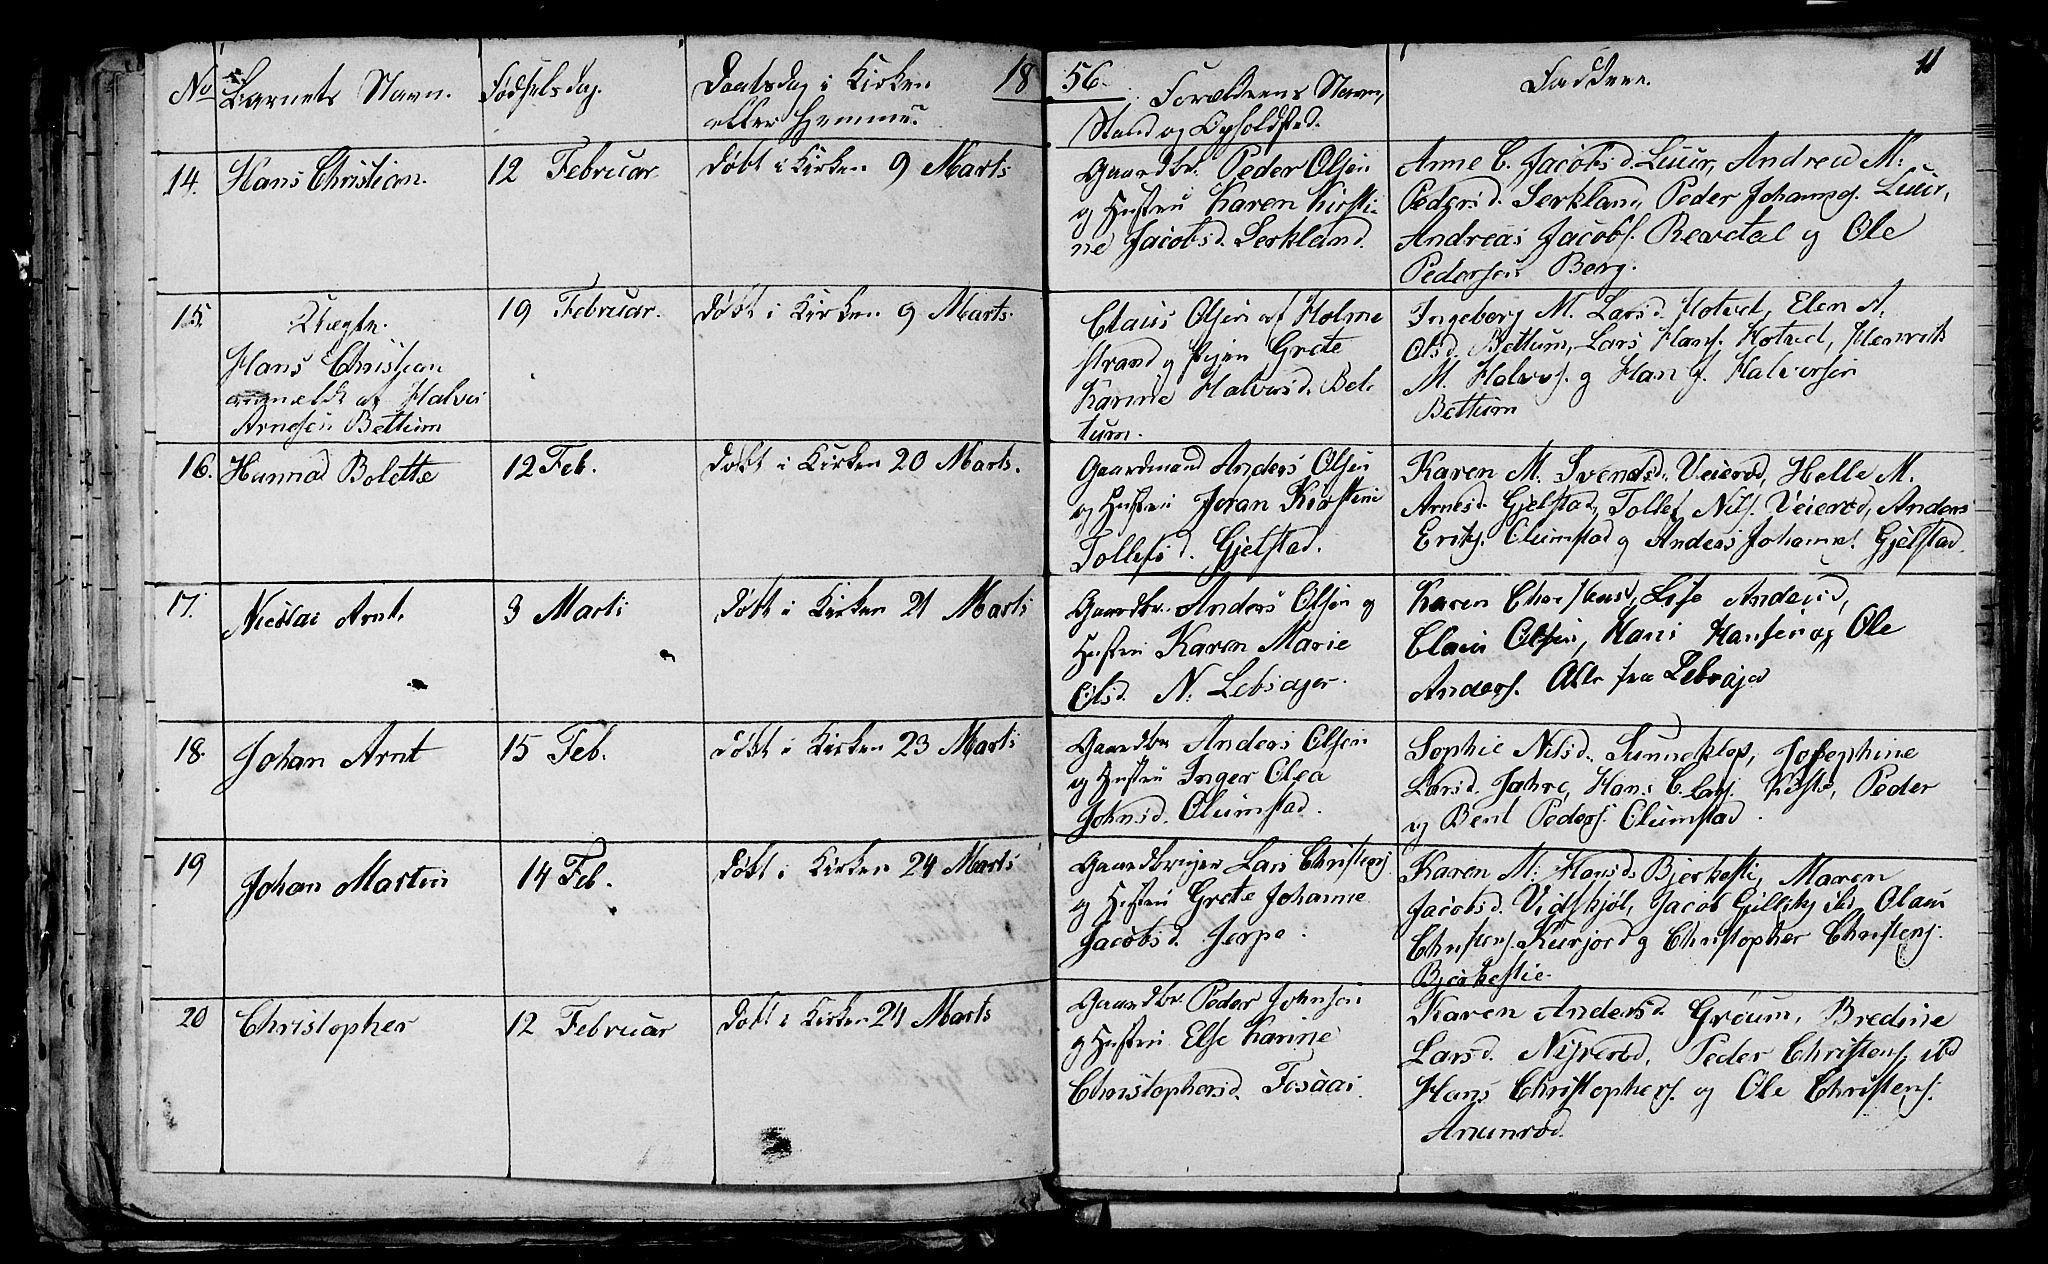 No Barnets Navn. Fødselsdag. Daabsdag i Kirken 1856. Forældrenes Navn, Faddere. 11
eller hjemme. Stand og Opholdsted.
14. Hans Christian. 12 Februar. døbt i Kirken 9 Marts
Gaardbr. Peder Olsen
og Hustru Karen Kirsti-
ne Jacobsd. Serkland.
Anne C. Jacobsd. Luur, Andrea M.
Pedersd. Serkland, Peder Johannes. Luur,
Andreas Jacobs. Revetal og Ole
Pedersen Berg.
15. Uægte. 19 Februar. døbt i Kirken 9 Marts.
Hans Christian
anmeldt af Halvor
Arnesen Bettum
Claus Olsen af Holme
strand og Pigen Grete
Karine Halvorsd. Bet-
tum.
Ingeborg M. Larsd. Hotvet, Elen A.
Olsd. Bettum, Lars Hans. Hotvet, Henrik
M. Halvors. og Han J. Halvorsen
Bettum
16. Hanna Bolette 12 Feb. døbt i Kirken 20 Marts.
Gaardmand Anders Olsen
og Hustru Joran Kirstine
Tollefsd. Gjelstad.
Karen M. Svendsd. Veierød, Helle M.
Arnesd. Gjelstad, Tollef Nils. Veierød, Anders
Eriks. Olumstad og Anders Johanns. Gjelstad.
17. Nicolai Arnt. 3 Marts døbt i Kirken 21 Marts
Gaardbr. Anders Olsen og
Hustru Karen Marie
Olsd. N. Lebsager.
Karen Lise Andersd,
Claus Olsen, Hans Hansen og Ole
Anders. Alle fra
18. Johan Arnt 15 Feb. døbt i Kirken 23 Marts
Gaardbr. Anders Olsen
og Hustru Inger Olea
Johnsd. Olumstad.
Sophie Nilsd. Sunneklep, Josephine
Larsd. Jahre, Hans C. Lars. Peder
og Bent Peders. Olumstad.
19 Johan Martin 14 Feb. døbt i Kirken 24 Marts
Gaardbruger Lars Christens.
og Hustru Grete Johanne
Jacobsd. Jerpe.
Karen M. Hansd. Bjerkestie, Maren
Jacobsd. Vidskjøl, Jacob ibd, Olaus
Christens. Kurjord og Christopher Christens.
Bjerkestie.
20 Christopher 12 Februar døbt i Kirken 24 Marts
Gaardbr. Peder Johnsen
og Hustru Else Karine
Christophersd. Fosaas.
Karen Andersd. Grøum, Bredine
Larsd. Nisrerød, Peder Christens. ibd
Hans Christophers. og Ole Christens.
Anunrød.